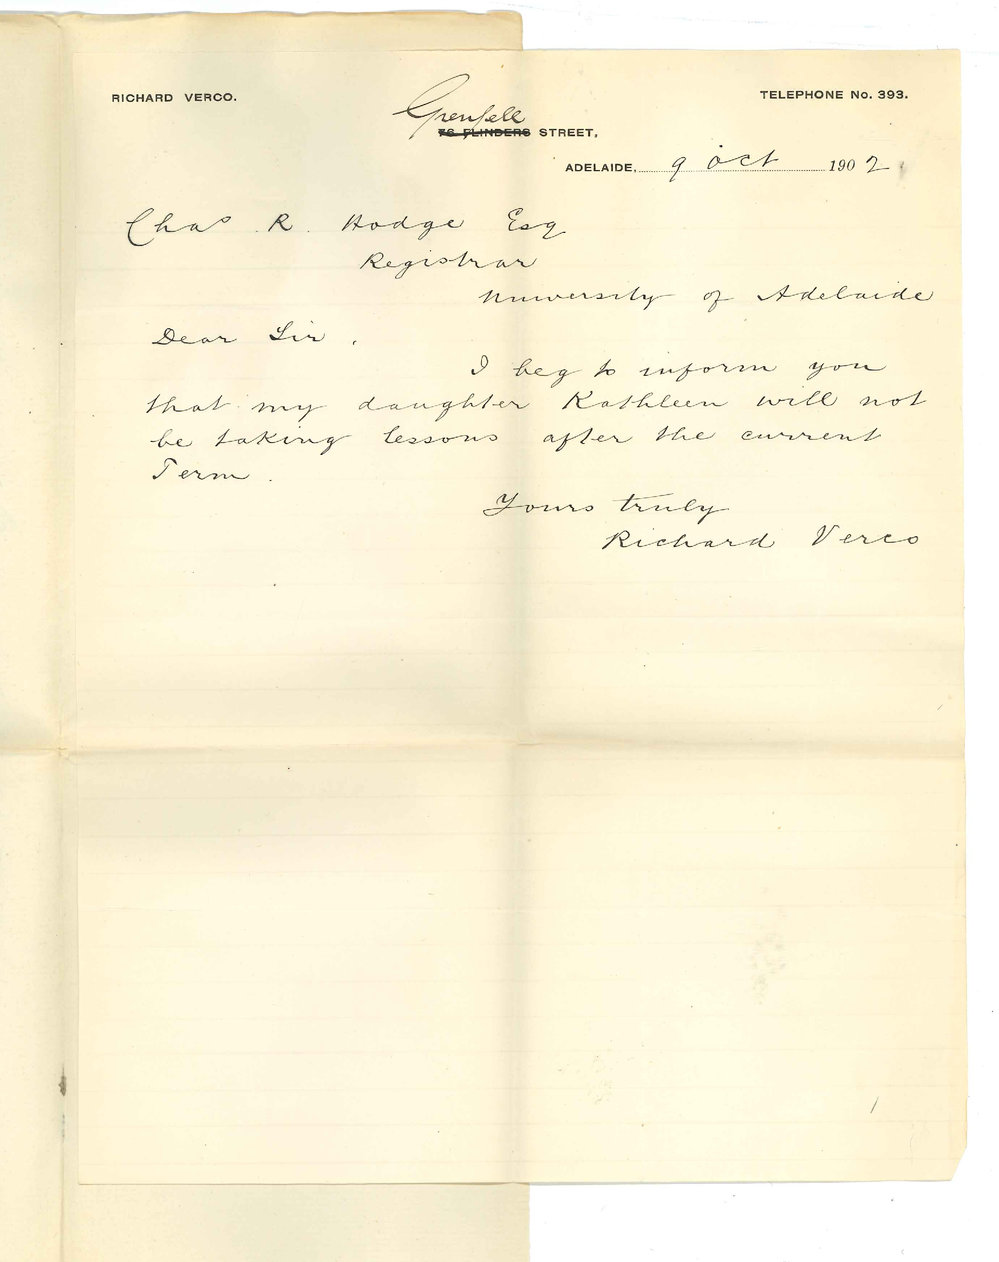 RICHARD VERCO.
TELEPHONE No. 393.
Grenfell
76 FLINDERS STREET,
ADELAIDE, 9 Oct 1902
Chas R. Hodge Esq
Registrar
University of Adelaide
Dear Sir,
I beg to inform you
that my daughter Kathleen will not
be taking lessons after the current
Term.
Yours truly
Richard Verco